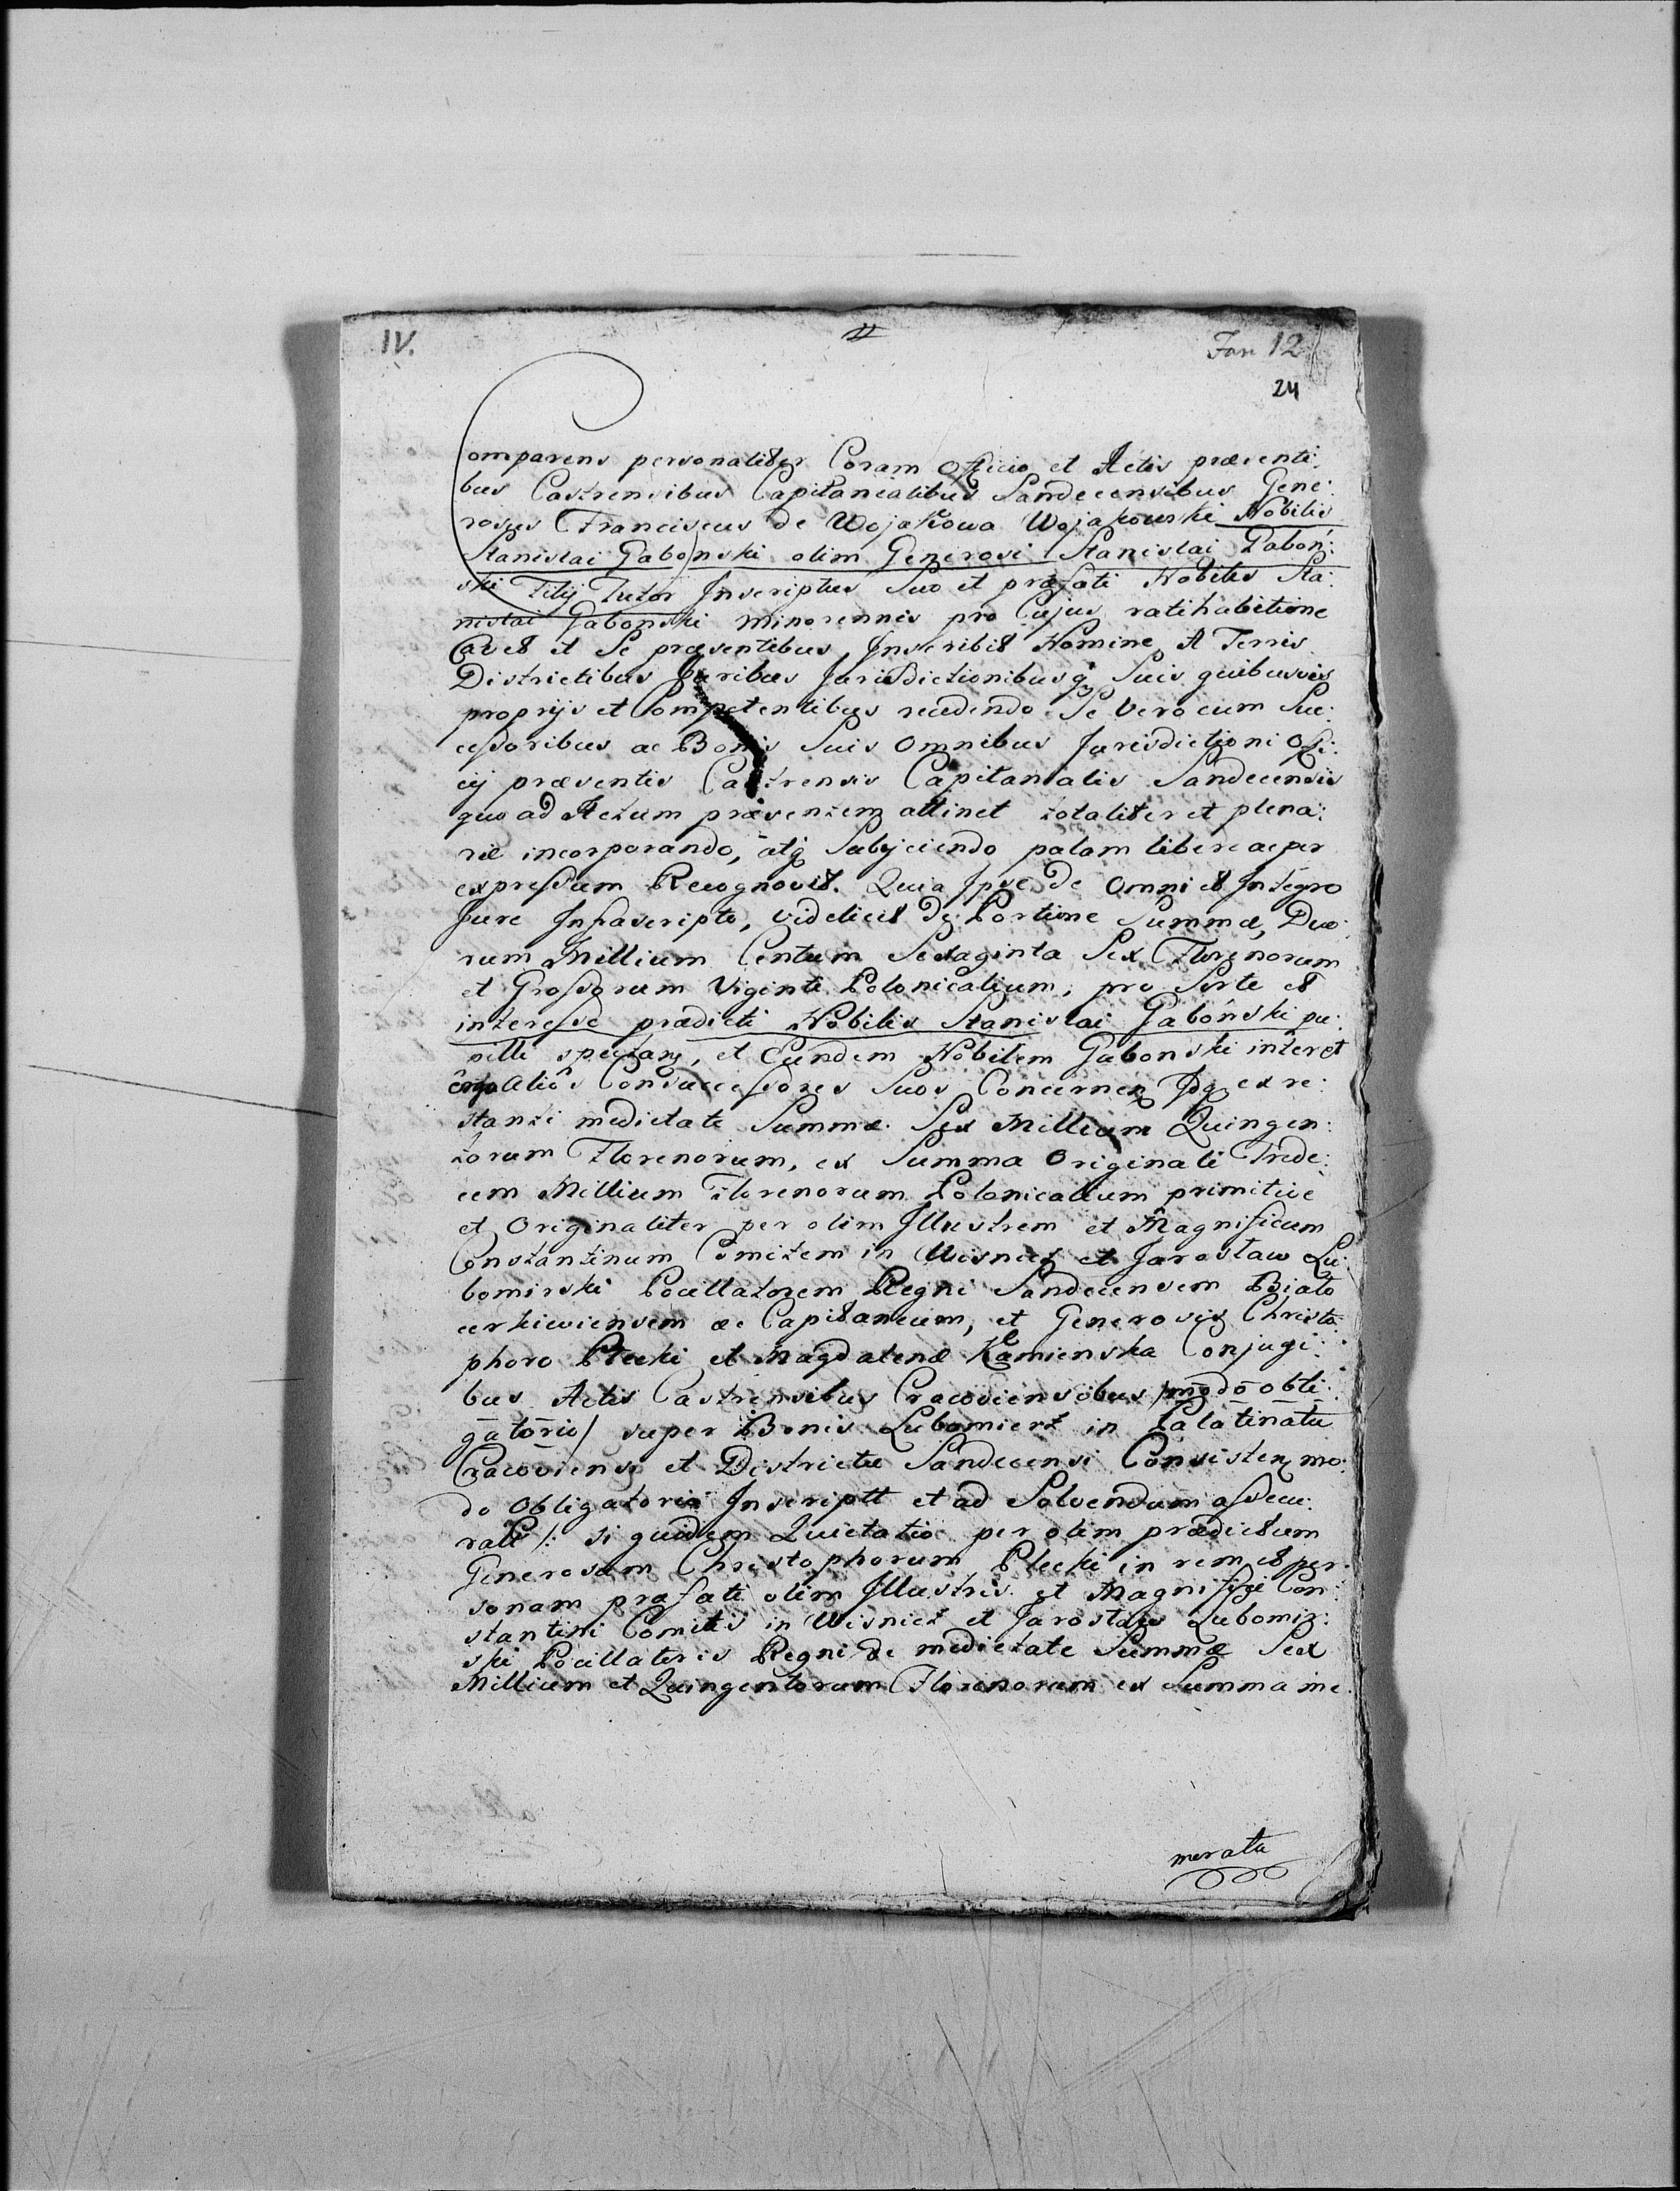 IV.
Fan 12
24
Comparens personaliter Coram Officio et Actis præsenti:
bus Castrensibus Capitanealibus Sandecensibus Gene:
rosus Franciscus de Wojakowa Wojakowski Nobilis
Stanislai Gabonski olim Generosi Stanislai Gaboń:
ski Filij Tutor Inscriptus Suo et præfati Nobilis Sta:
nislai Gabonski minorennis pro Cujus ratihabitione
Cavet et Se præsentibus Inscribit Nomine A Terris
Districtibus Juribus Jurisdictionibusq Suis quibusvis
proprijs et Competentibus recedendo Se vero cum Suc:
cessoribus ac Bonis Suis Omnibus Jurisdictioni Offi:
cij præsentis Castrensis Capitanealis Sandecensis
quo ad Actum præsentem attinet totaliter et plena:
riè incorporando, atq Subjiciendo palam libere ac per
expressum Recognovit. Quia Ipse De Omni et Integro
Jure Infrascripto, videlicet De Portione Summæ, Duo:
rum Millium Centum Sexaginta Sex Florenorum
et Grossorum Viginti Polonicalium, pro Sorte et
interesse prædicti Nobilis Stanislai Gabónski pu:
pilli spectan, et Eundem Nobilem Gabonski inter et
erga Alios Consuccessores Suos Concernen Idq ex re:
stanti medietate Summæ Sex Millium Quingen:
torum Florenorum, ex Summa Originali Trede:
cem Millium Florenorum Polonicalium primitive
et Originaliter per olim Illustrem et Magnificum
Constantinum Comitem in Wisnicz et Jarosław Lu:
bomirski Pocillatorem Regni Sandecensem Biało
cerkiewiensem æ Capitaneum, et Generosis Christo
phoro Plecki et Magdalenæ Kamienska Conjugi:
bus Actis Castrensibus Cracoviensibus /modo obli:
gatorio/ super Bonis Lubomierz in Palatinatu
Cracoviensi et Districtu Sandecensi Consisten mo:
do Obligatorio Inscriptt et ad Solvendum assecu:
ratt /: si quidem Quietatio per olim prædictum
Generosum Christophorum Plecki in rem et per
sonam præfati olim Illustris et Magnifici Con:
stantini Comitis in Wisnicz et Jarosław Lubomir:
ski Pocillatoris Regni de medietate Summæ Sex
Millium et Quingentorum Florenorum ex Summa me
morata